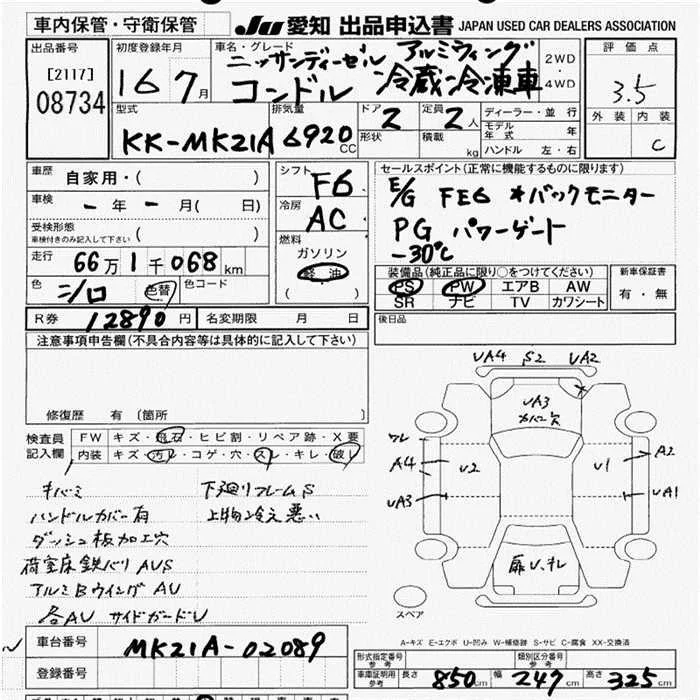 車内保管・守衛保管
JU 愛知 出品申込書 JAPAN USED CAR DEALERS ASSOCIATION
出品番号
[2117]
08734
初度登録年月
16 7月
車名・グレード
ニッサンディーゼル アルミウィング
コンドル 冷蔵冷凍車
2WD
4WD
評価点
3.5
外装 内装
C
型式
KK-MK21A
排気量
6920 CC
ドア 2
形状
定員 2 人
積載 kg
ディーラー・並行
モデル年式 年
ハンドル 左・右
車歴 自家用・( )
車検 ー年ー月( 日)
受検形態
車検付きのみ記入して下さい ( )
走行 66万1千068km
色 シロ 色替 色コード
シフト F6
冷房 AC
燃料
ガソリン
軽油
( )
セールスポイント(正常に機能するものに限ります)
E/G FE6 *バックモニター
PG パワーゲート
-30℃
装備品(純正品に限り○をつけてください)
PS PW エアB AW
SR ナビ TV カワシート
新車保証書
有・無
R券 12890円 名変期限 月 日
後日品
注意事項申告欄(不具合内容等は具体的に記入して下さい)
修復歴 有 〔箇所
検査員記入欄
FW キズ・飛石・ヒビ割・リペア跡・X要
内装 キズ・汚レ・コゲ・穴・スレ・キレ・破レ
キバミ 下廻りフレームS
ハンドルカバー有 上物冷え悪い
ダッシュ板加工穴
荷室床鉄バリ AUS
アルミBウイング AU
各AU サイドガードU
UA4 S2 UA2
UA3
カバー欠
ワレ
A4
UA3
U2
U1
A2
UA1
扉U、キレ
スペア
A-キズ E-エクボ U-凹み W-補修跡 S-サビ C-腐食 XX-交換済
車台番号 MK21A-02089
登録番号
形式指定番号 参考
類別区分番号 参考
車庫証明用 参考 長さ 850cm 幅 247cm 高さ 325cm